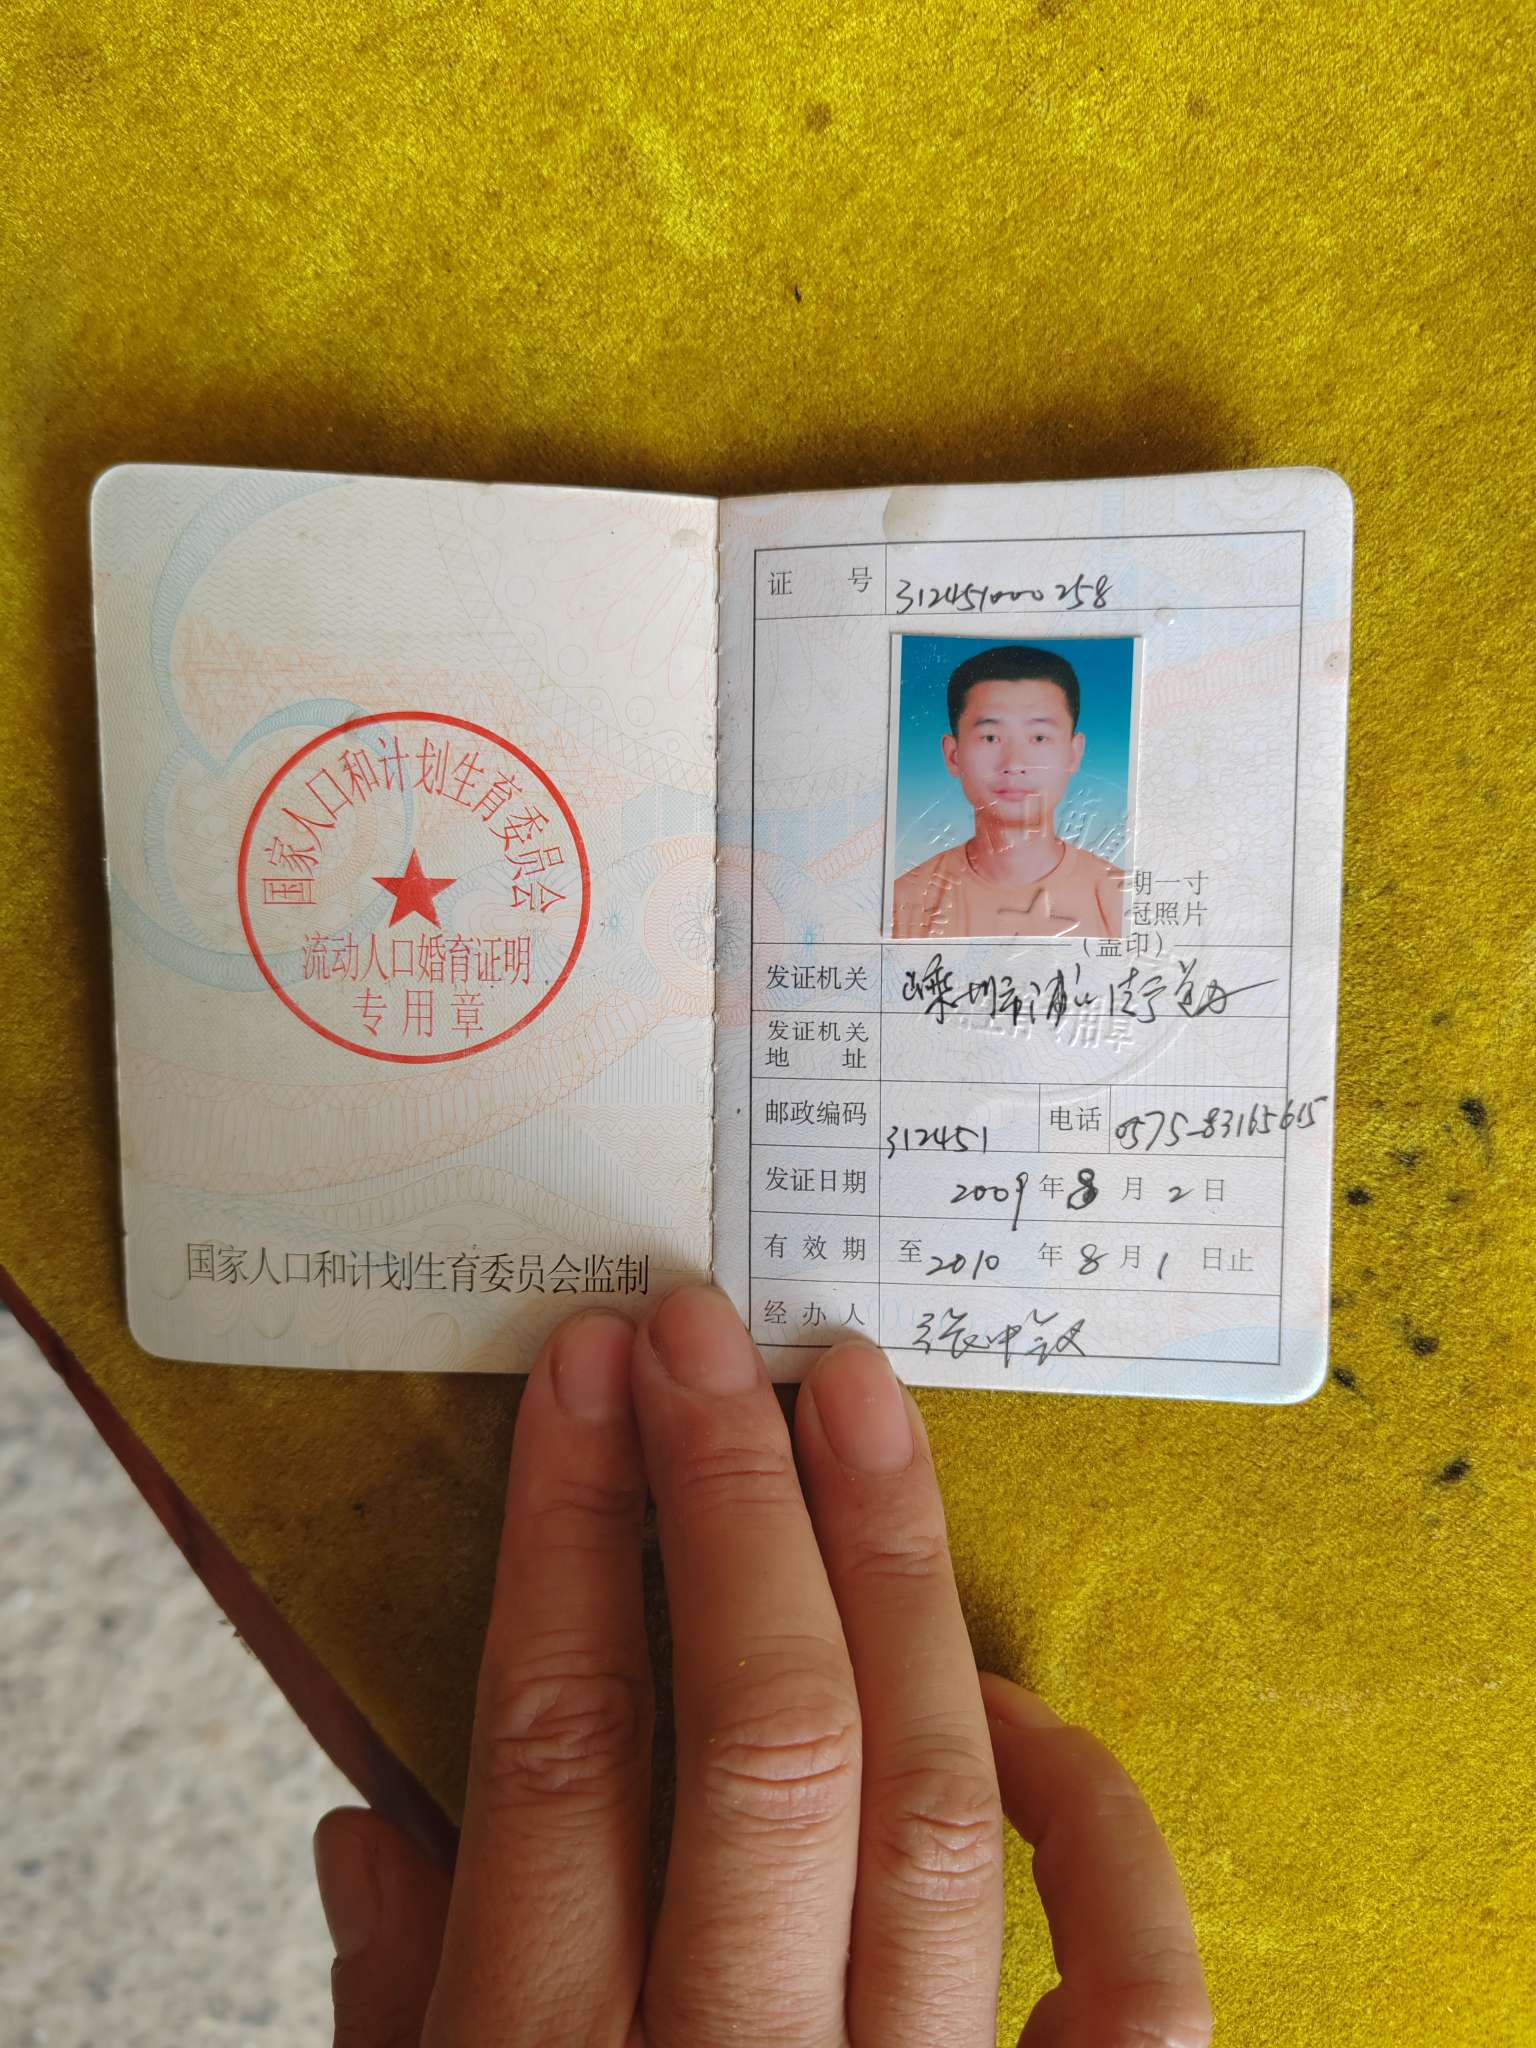 国家人口和计划生育委员会
流动人口婚育证明
专用章
国家人口和计划生育委员会监制
证 号 312451000258
期一寸
冠照片
(盖印)
发证机关 嵊州市浦口街道
发证机关
地 址
邮政编码 312451 电话 0575-83165615
发证日期 2009年8月2日
有效期 至2010年8月1日止
经办人